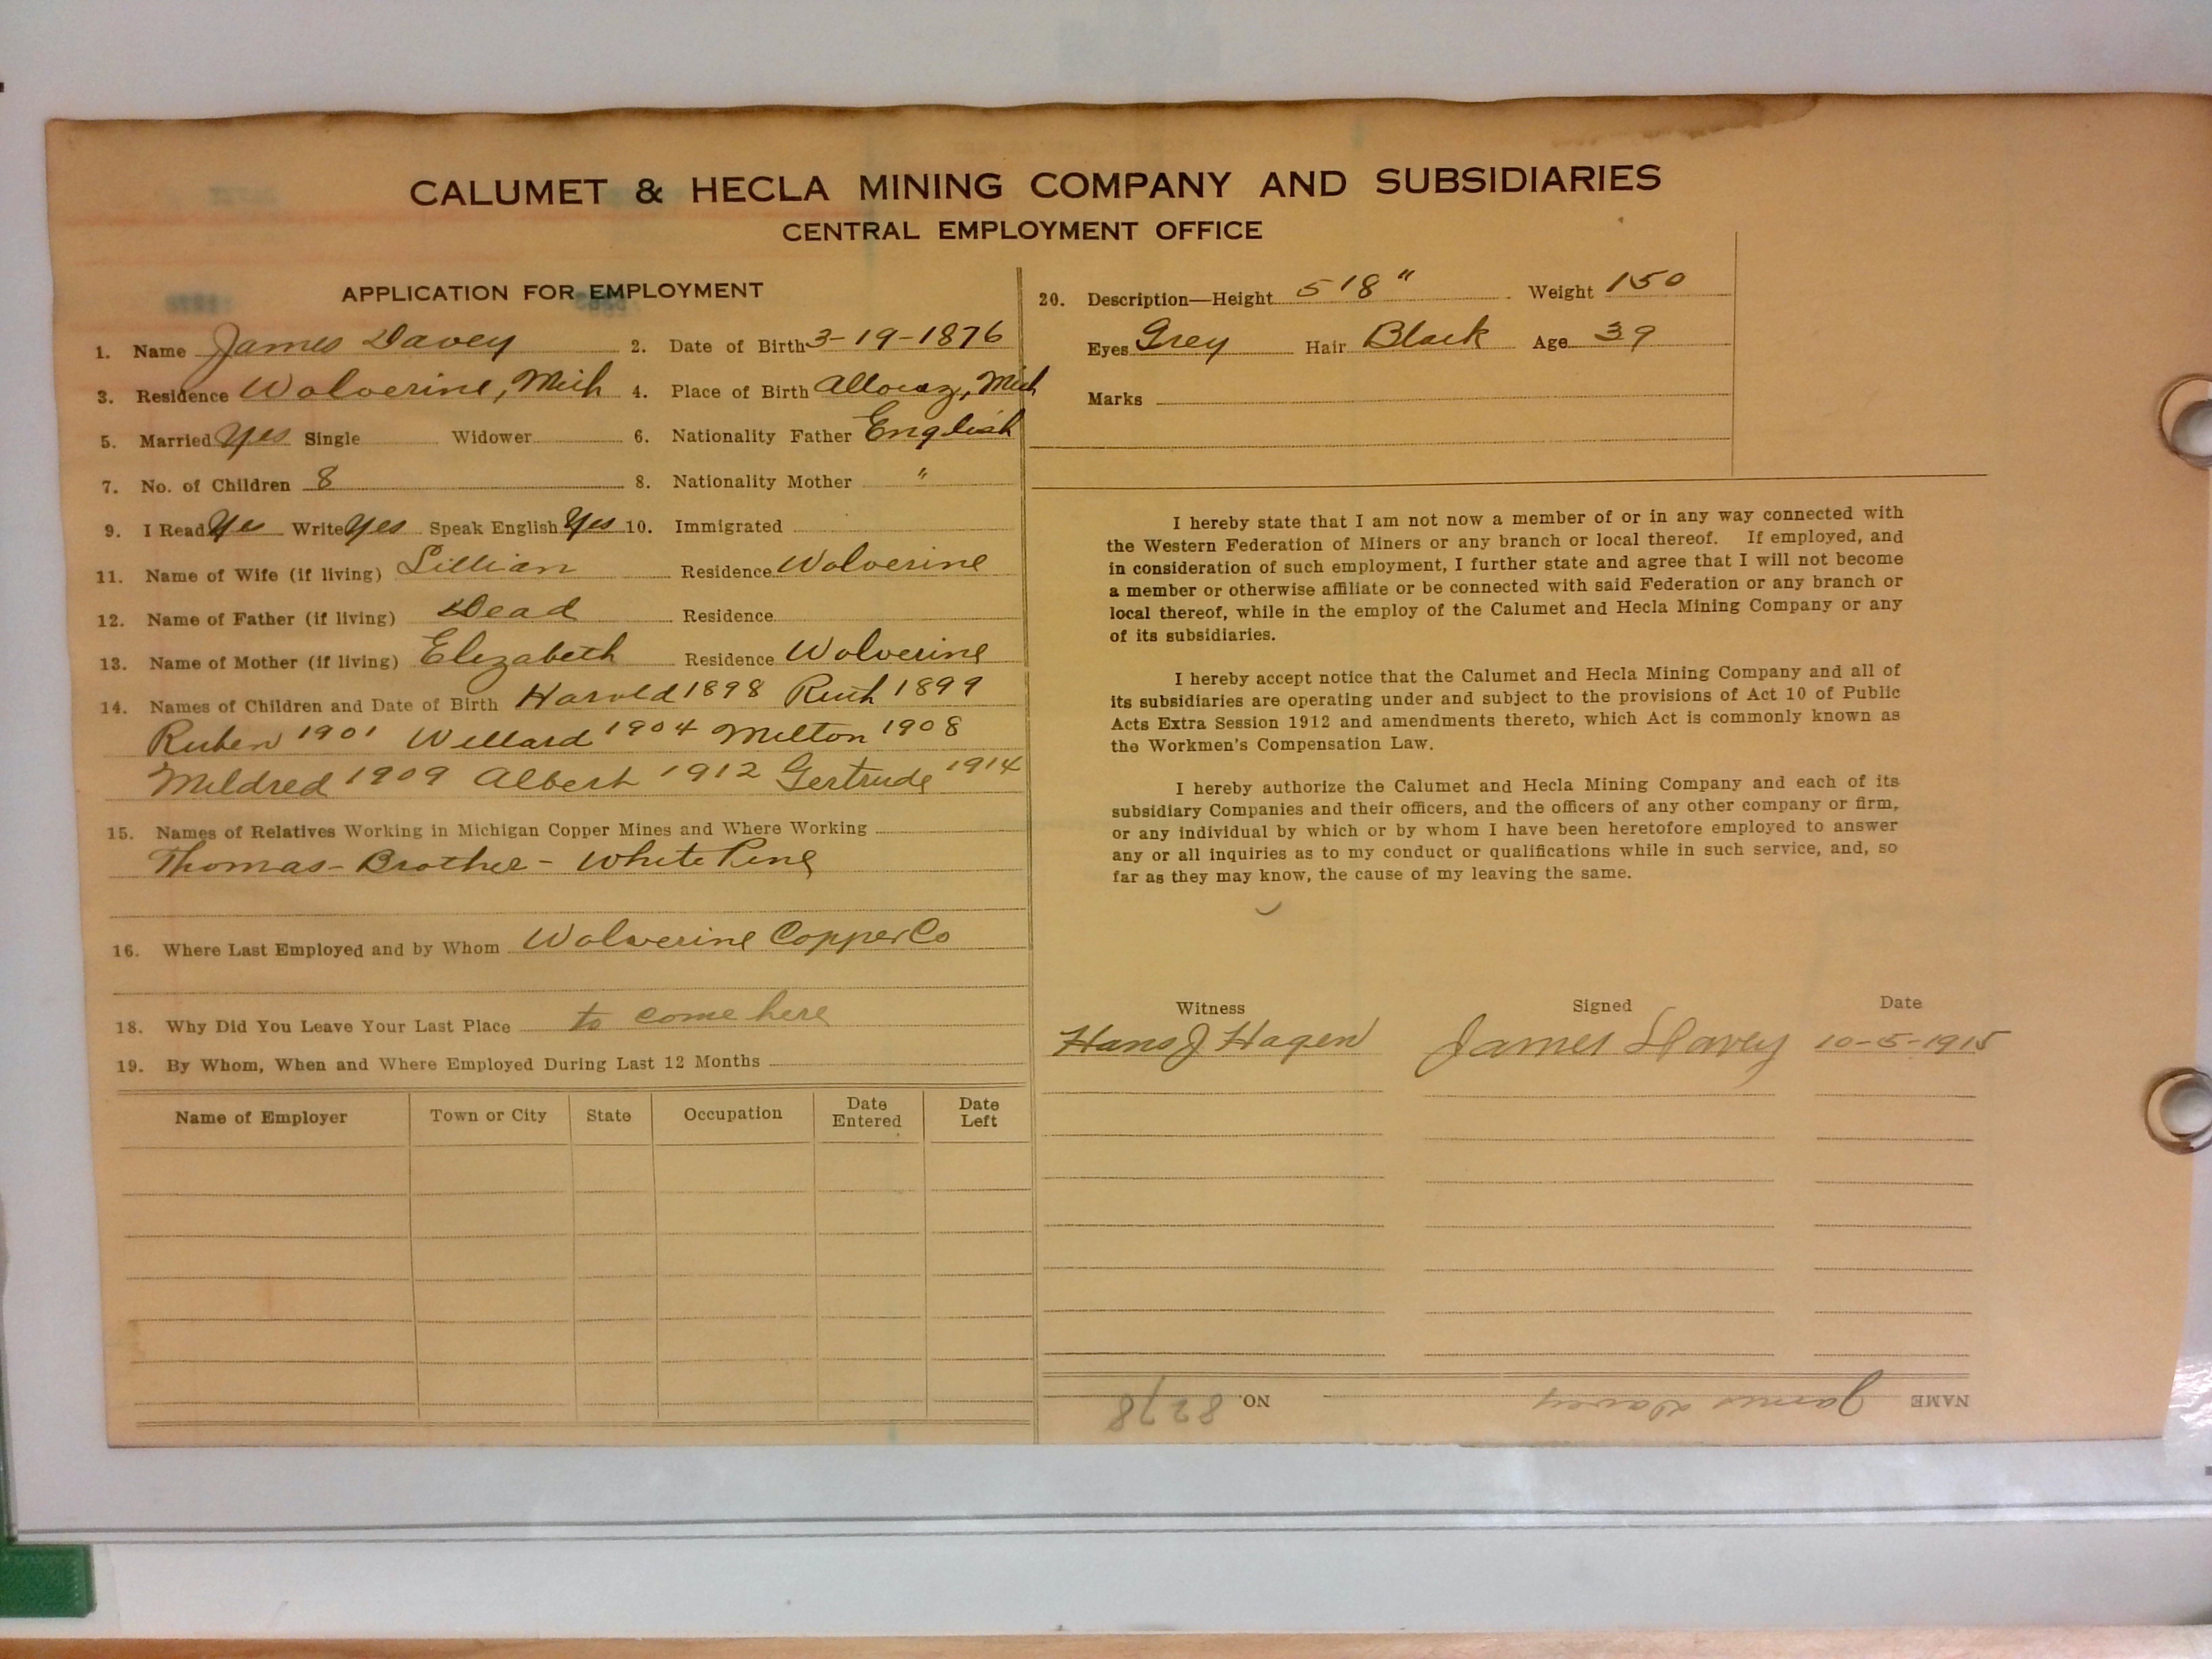 CALUMET & HECLA MINING COMPANY AND SUBSIDIARIES
CENTRAL EMPLOYMENT OFFICE
APPLICATION FOR EMPLOYMENT
1. Name James Davey 2. Date of Birth 3-19-1876
3. Residence Wolverine, Mich 4. Place of Birth Allouez, Mich
5. Married Yes Single Widower 6. Nationality Father English
7. No. of Children 8 8. Nationality Mother "
9. I Read Yes Write Yes Speak English Yes 10. Immigrated
11. Name of Wife (if living) Lillian Residence Wolverine
12. Name of Father (if living) Dead Residence
13. Name of Mother (if living) Elizabeth Residence Wolverine
14. Names of Children and Date of Birth Harold 1898 Ruth 1899
Ruben 1901 Willard 1904 Milton 1908
Mildred 1909 Albert 1912 Gertrude 1914
15. Names of Relatives Working in Michigan Copper Mines and Where Working
Thomas - Brother - White Pine
16. Where Last Employed and by Whom Wolverine Copper Co
18. Why Did You Leave Your Last Place to come here
19. By Whom, When and Where Employed During Last 12 Months
Name of Employer Town or City State Occupation Date Entered Date Left
20. Description—Height 5'8" Weight 150
Eyes Grey Hair Black Age 39
Marks
I hereby state that I am not now a member of or in any way connected with
the Western Federation of Miners or any branch or local thereof. If employed, and
in consideration of such employment, I further state and agree that I will not become
a member or otherwise affiliate or be connected with said Federation or any branch or
local thereof, while in the employ of the Calumet and Hecla Mining Company or any
of its subsidiaries.
I hereby accept notice that the Calumet and Hecla Mining Company and all of
its subsidiaries are operating under and subject to the provisions of Act 10 of Public
Acts Extra Session 1912 and amendments thereto, which Act is commonly known as
the Workmen's Compensation Law.
I hereby authorize the Calumet and Hecla Mining Company and each of its
subsidiary Companies and their officers, and the officers of any other company or firm,
or any individual by which or by whom I have been heretofore employed to answer
any or all inquiries as to my conduct or qualifications while in such service, and, so
far as they may know, the cause of my leaving the same.
Witness Signed Date
Hans J Hagen James Davey 10-5-1915
NAME James Davey NO. 8278